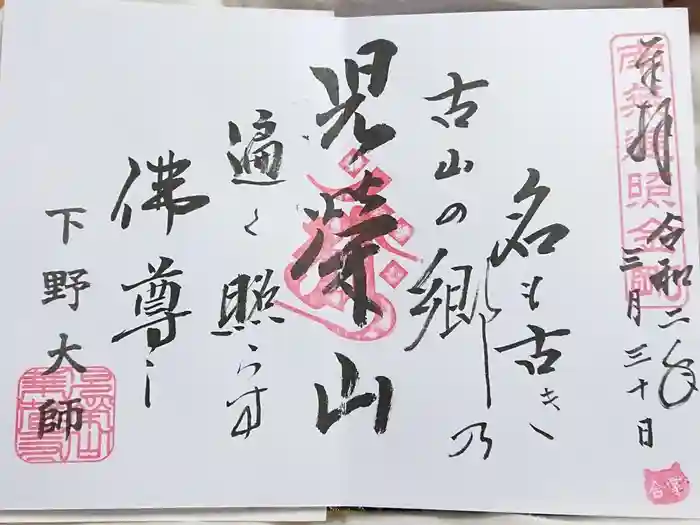 奉拝
南無遍照金剛
令和二年
三月三十日
名も古き
古山の郷乃
児栄山
遍く照らす
佛尊し
下野大師
合掌